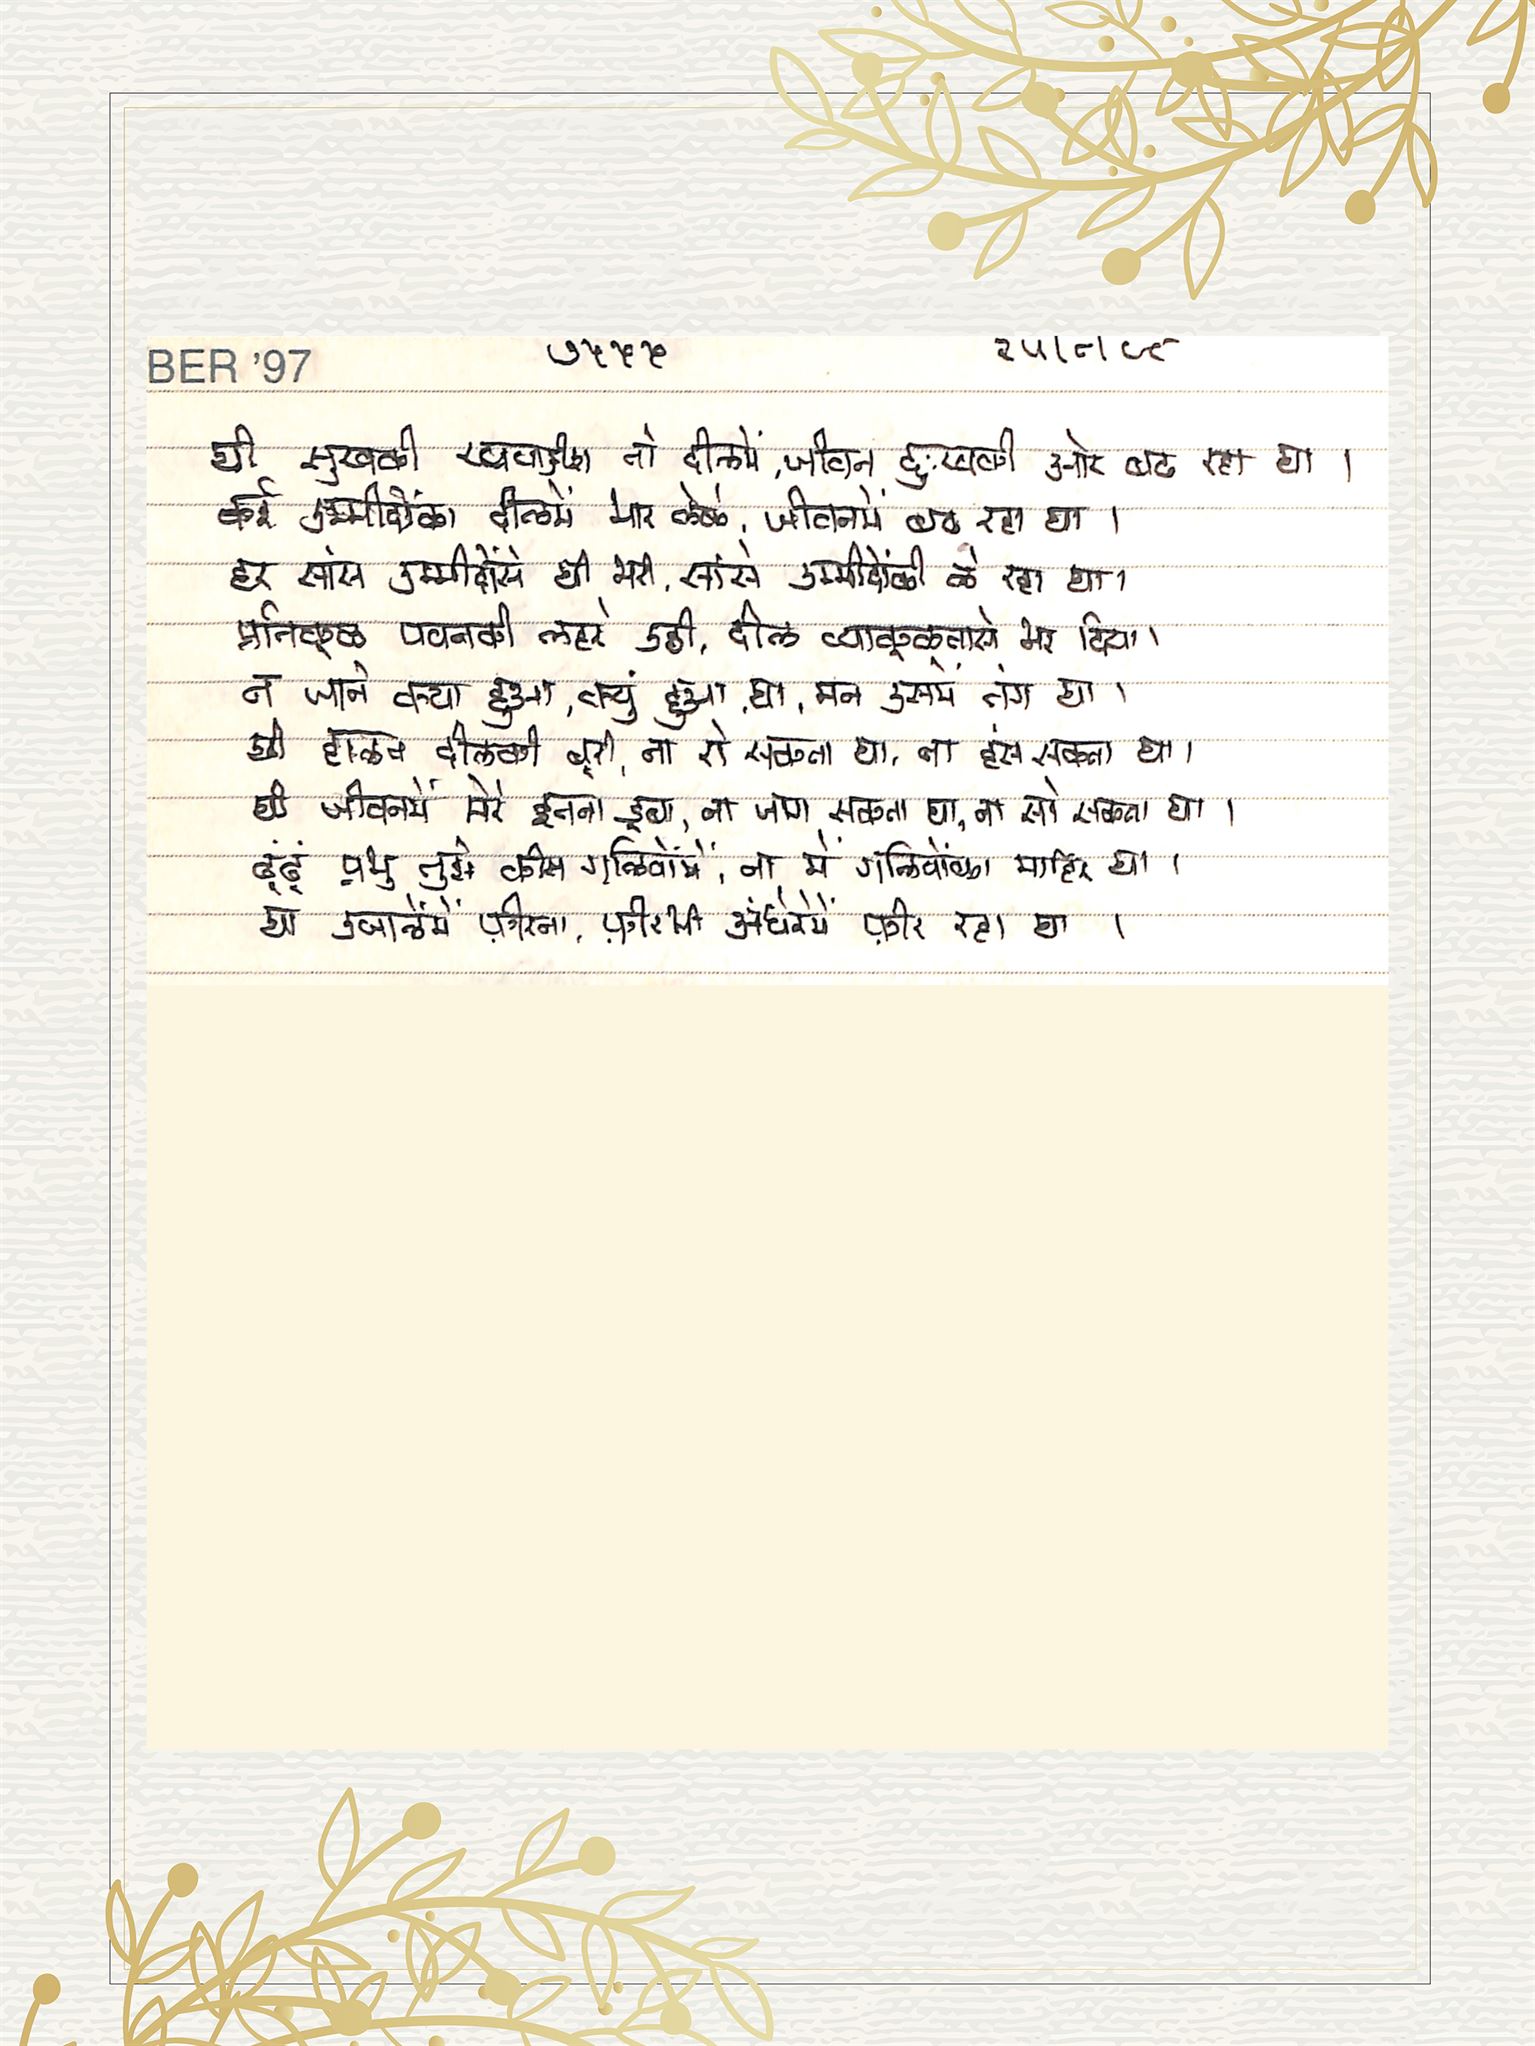 BER '97 ७५५५ २५।८।८९
थी सुखकी ख्वाईश तो दीलमें, जीवन दुःखकी ओर बढ रहा था ।
कई उम्मीदोंका दीलमें भार लेके, जीवनमें बढ रहा था ।
हर सांस उम्मीदोंसे थी भरी, सांसे उम्मीदोंकी ले रहा था।
प्रतिकूळ पवनकी लहरे उठी, दील व्याकूळतासे भर दिया।
न जाने क्या हुआ, क्युं हुआ था, मन उसमें तंग था ।
थी हालत दीलकी बूरी, ना रो सकता था, ना हंस सकता था।
थी जीवनमें मेरे इतना डूबा, ना जाग सकता था, ना सो सकता था ।
ढूंढूं प्रभु तुझे कीस गलियोंमें, ना में गलियोंका माहिर था ।
था उजालेंमें फ़ीरना, फ़ीरभी अंधेरेमें फ़ीर रहा था ।